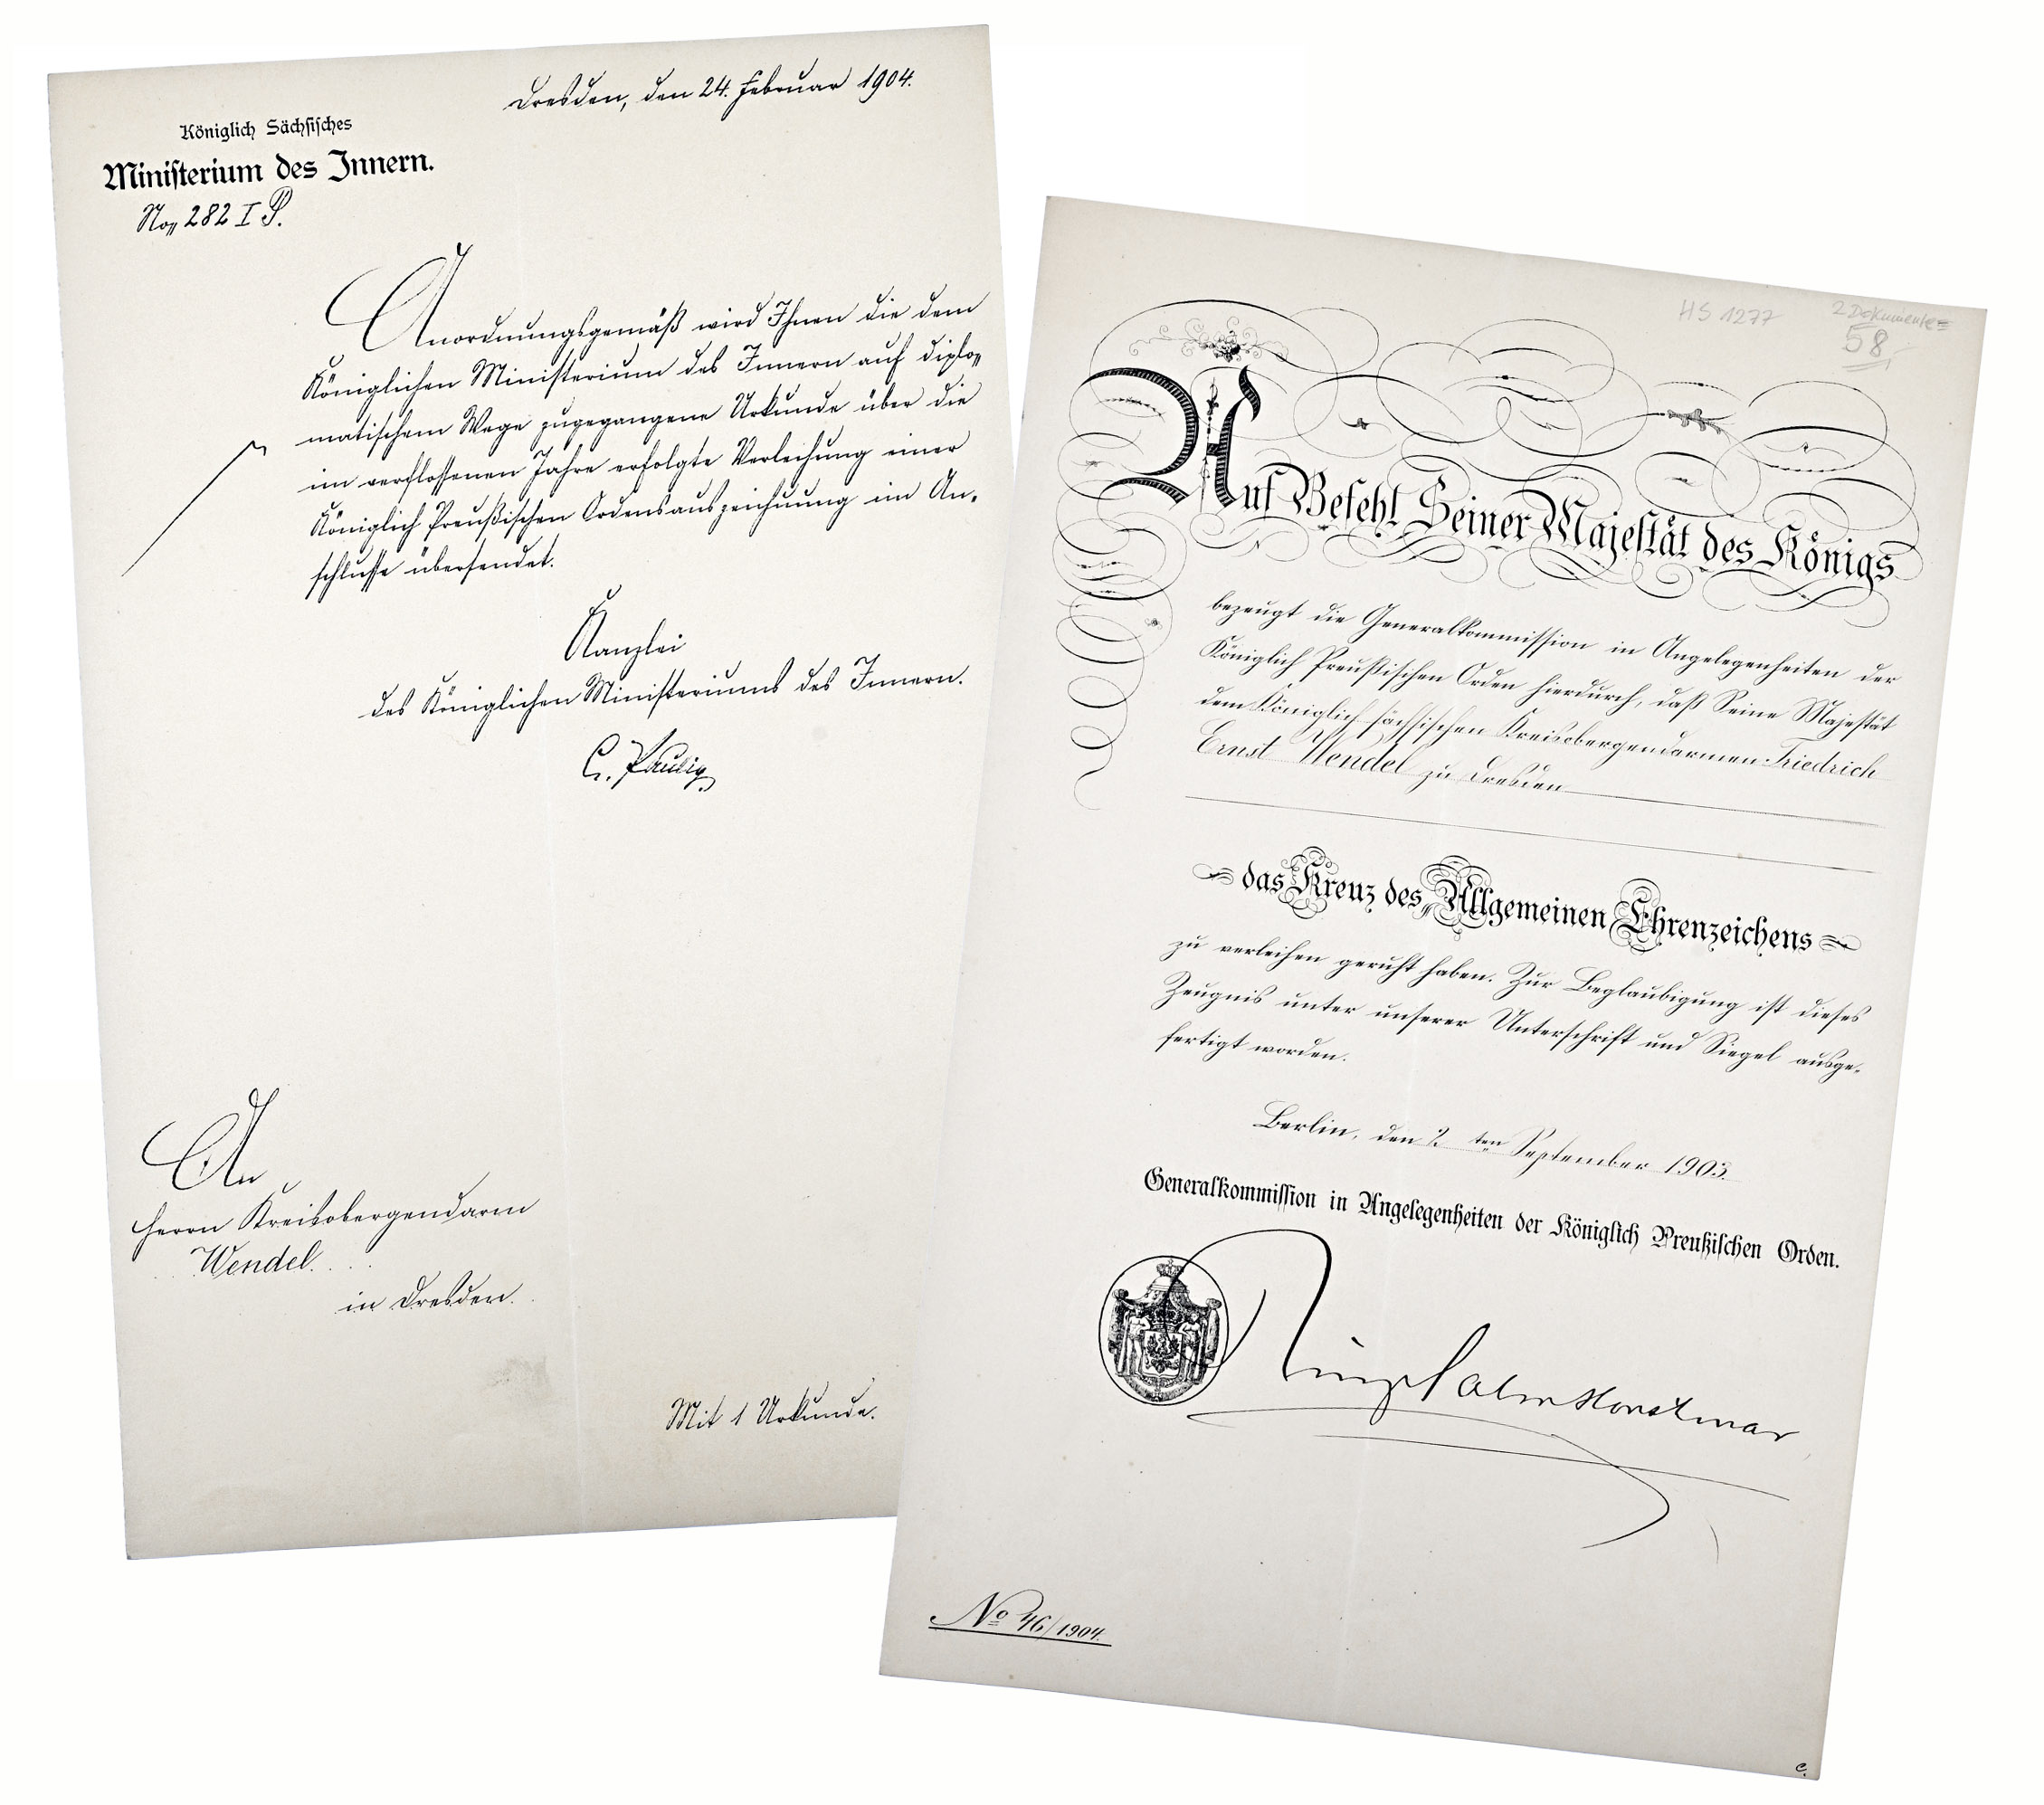 Dresden, den 24. Februar 1904.
Königlich Sächsisches
Ministerium des Innern.
No, 282 I P.
Anordnungsgemäß wird Ihnen die dem
Königlichen Ministerium des Innern auf diplo„
matischem Wege zugegangene Urkunde über die
im verflossenen Jahre erfolgte Verleihung einer
Königlich Preußischen Ordensauszeichnung im An„
schlusse übersendet.
Kanzlei
des Königlichen Ministeriums des Innern.
An
Herrn Kreisobergendarm
Wendel
in Dresden.
Mit 1 Urkunde.
HS 1277
2 Dokumente
58,-
Auf Befehl Seiner Majestät des Königs
bezeugt die Generalkommission in Angelegenheiten der
Königlich Preußischen Orden hierdurch, daß Seine Majestät
dem Königlich sächsischen Kreisobergendarmen Friedrich
Ernst Wendel zu Dresden
das Kreuz des Allgemeinen Ehrenzeichens
zu verleihen geruht haben. Zur Beglaubigung ist dieses
Zeugnis unter unserer Unterschrift und Siegel ausge„
fertigt worden.
Berlin, den 2 ten September 1903.
Generalkommission in Angelegenheiten der Königlich Preußischen Orden.
Salm Horstmar
No 46/1904.
C.